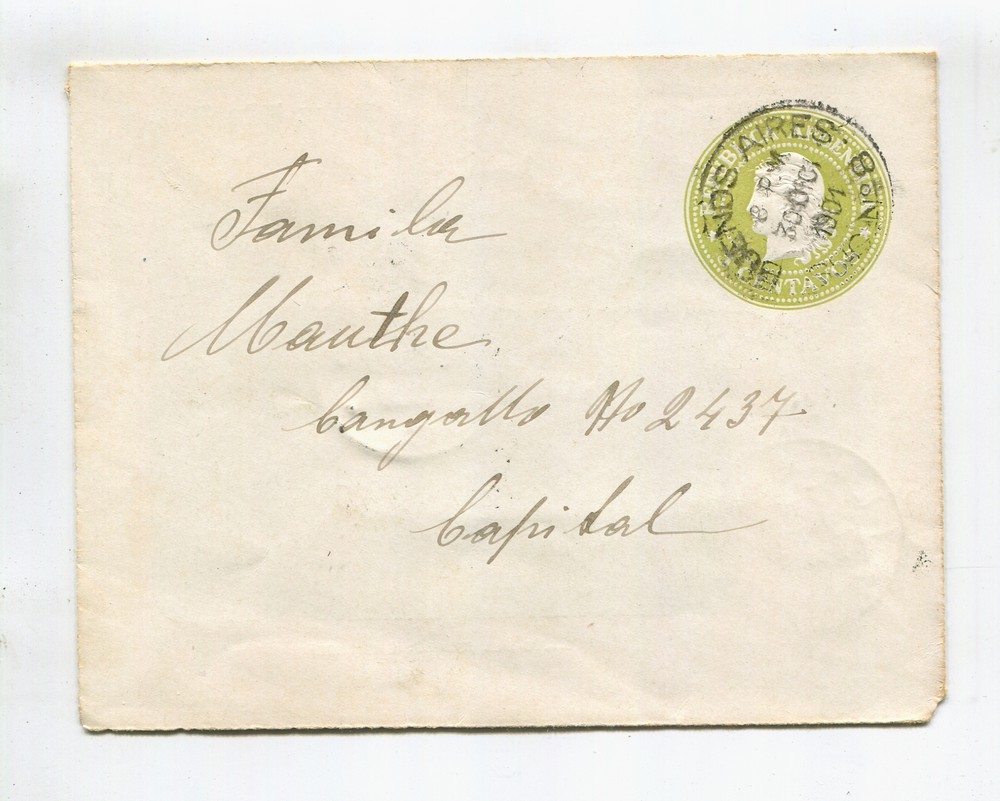 Familia
Mauthe
Cangallo No 2437
Capital
BUENOS AIRES 8
8 P.M
30 DIC
1901
CENTAVOS